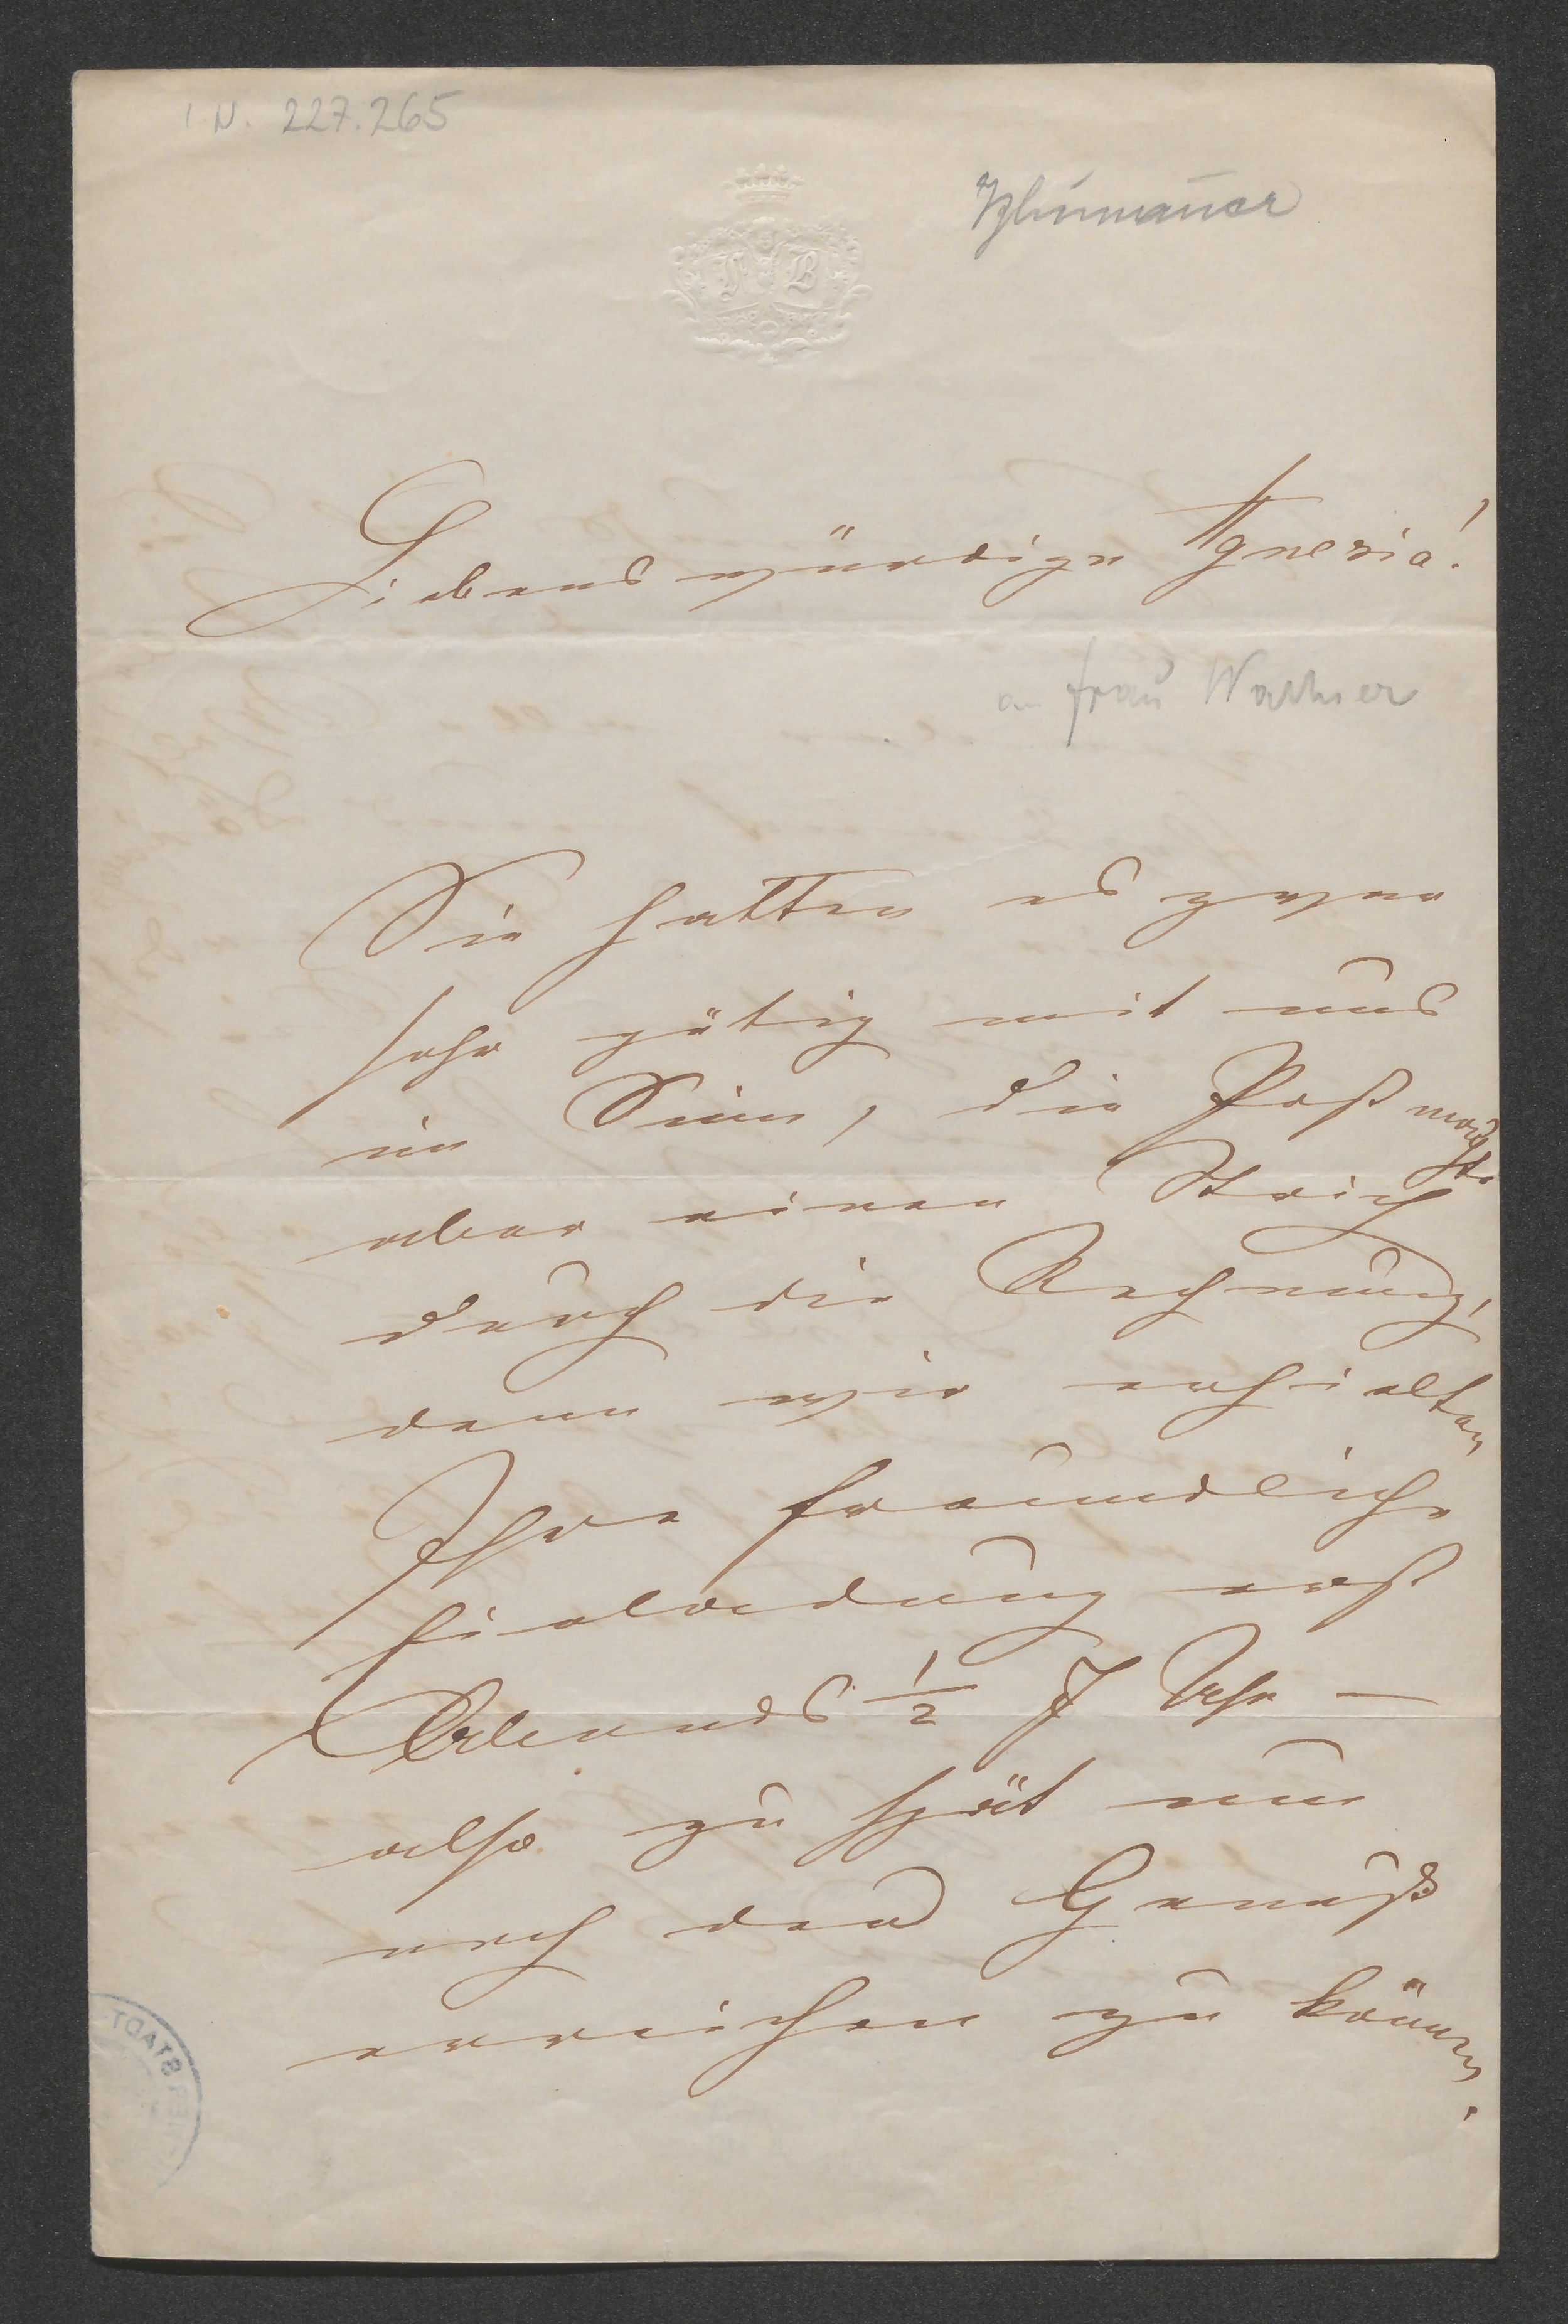 I. N. 227.265
Blumauer
Liebenswürdige Agnesia!
an Frau Wallner
Sie hatten es zwar
sehr gütig mit uns
im Sinn, die Post machte
aber einen Strich
durch die Rechnung,
denn wir erhielten
Ihre freundliche
Einladung erst
Abends 1/2 7 Uhr —
also zu spät um
noch den Genuß
erreichen zu können.
STADT